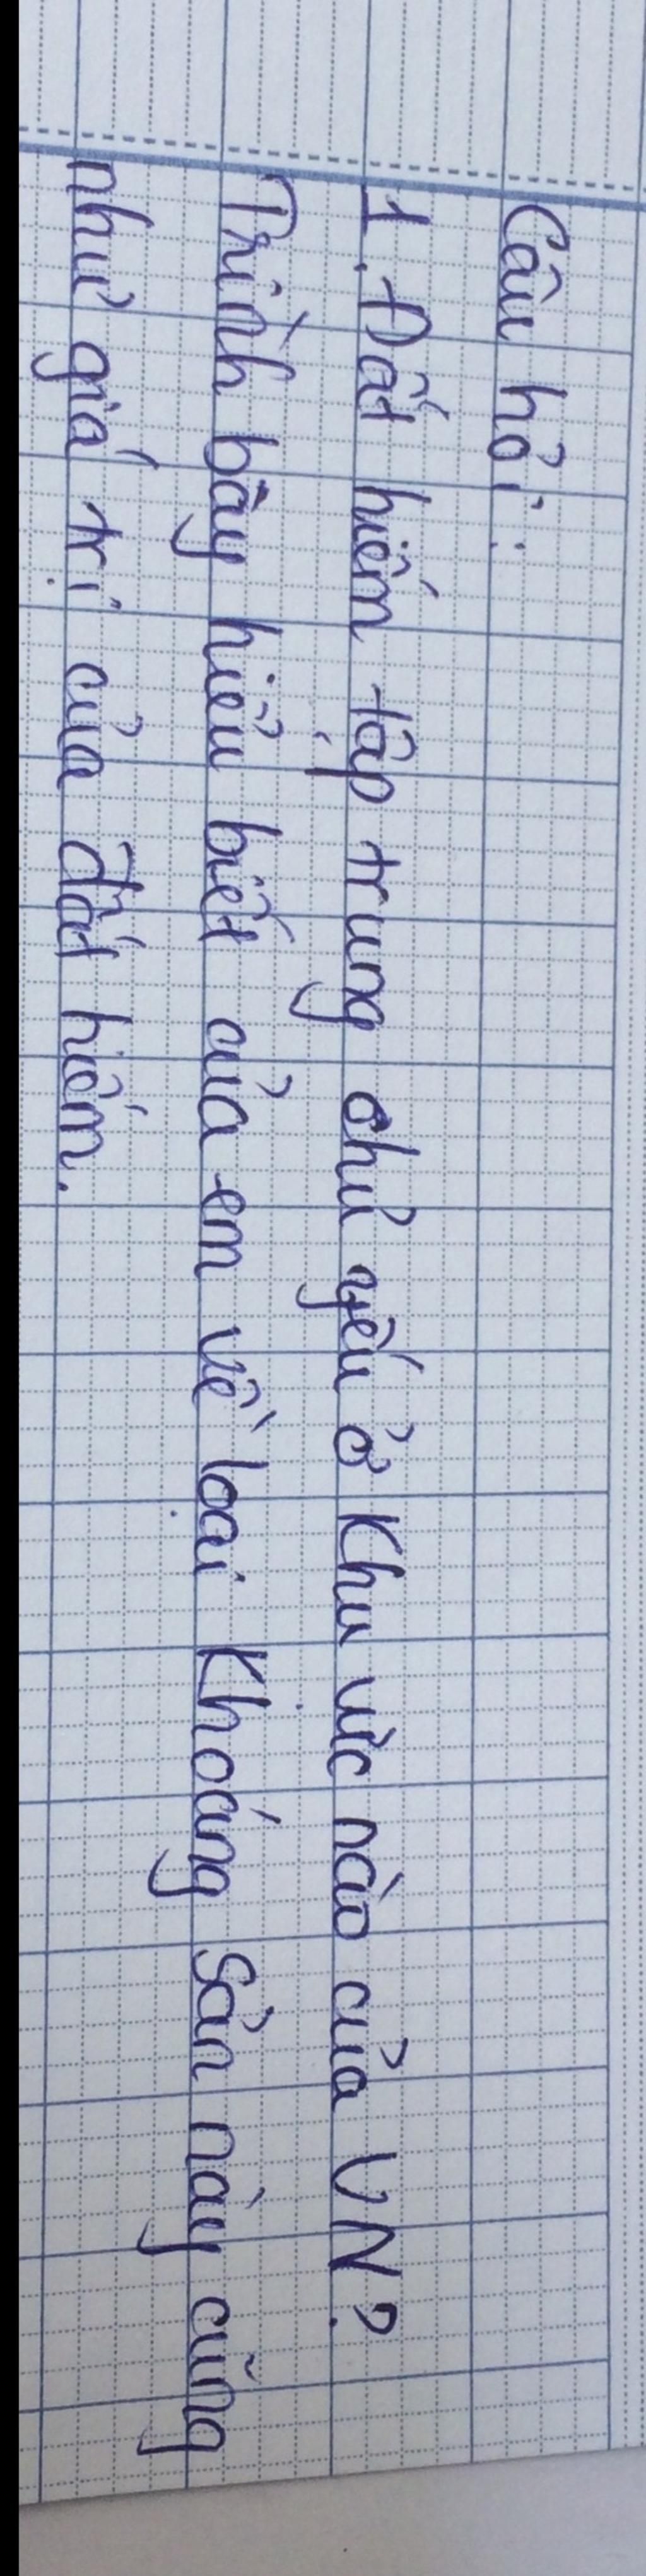 Câu hỏi:
1. Đất hiếm tập trung chủ yếu ở khu vực nào của VN?
Trình bày hiểu biết của em về loại khoáng sản này cũng
như giá trị của đất hiếm.